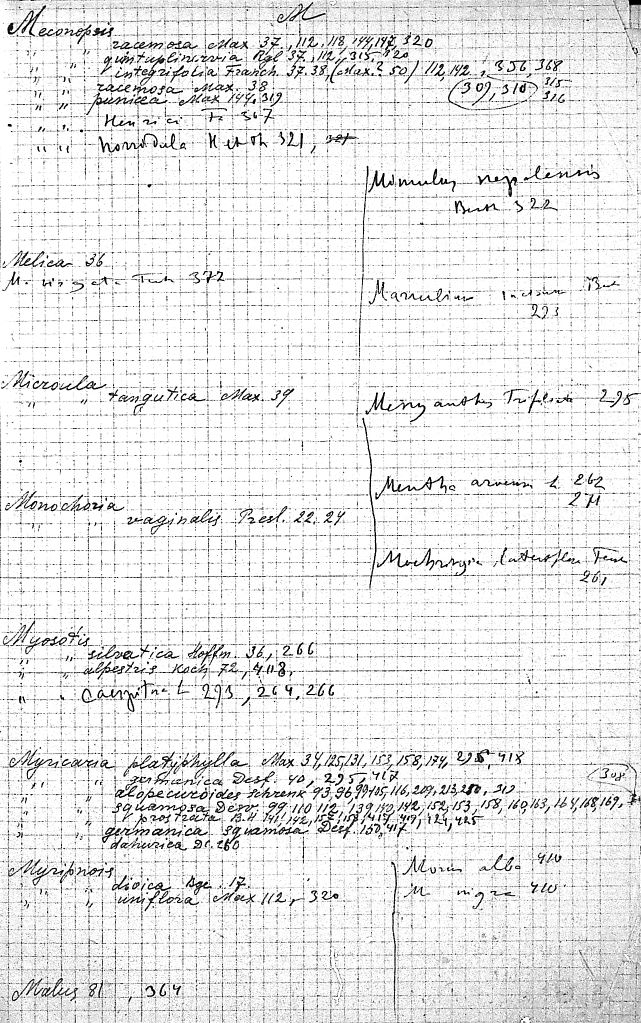 M
Meconopsis
" " racemosa Max 37, 112, 118, 144, 147, 320
" " quintuplinervia Rgl 37, 112, 315, 320
" " integrifolia Franch. 37. 38. (Max? 50) 112, 142, 356, 368
" " racemosa Max. 38 (309, 310) 315
" " punicea Max 144, 319 316
" " Henrici 367
" " horridula 321, 321
Mimulus nepalensis
Benth 322
Melica 36
M. 372
Marrubium incisum
293
Microula
" " tangutica Max. 39
Menyanthes Trifoliata 295
Mentha arvensis L. 262
271
Monochoria
" " vaginalis. Presl. 22. 24
lateriflora Fenzl
261
Myosotis
" " silvatica Hoffm. 36, 266
" " alpestris Koch 72, 418,
" " L 293, 264, 266
Myricaria platyphylla Max 34, 125, 131, 153, 158, 174, 295, 418
" " germanica Desf. 40, 295, 417 (308)
" " alopecuroides Schrenk 93. 96 99 105, 116, 209, 213, 250, 310
" " squamosa Desv. 99, 110 112, 139, 140, 142, 152, 153, 158, 160, 163, 164, 168, 169,
" " prostrata B.H 141, 142, 157, 158, 417, 419, 424, 425
" germanica squamosa Desf. 150, 417
dahurica Dc. 260
Myripnois
" " dioica Bge. 17.
" " uniflora Max 112, 320
Morus alba 410
M nigra 410
Malus 81, 364